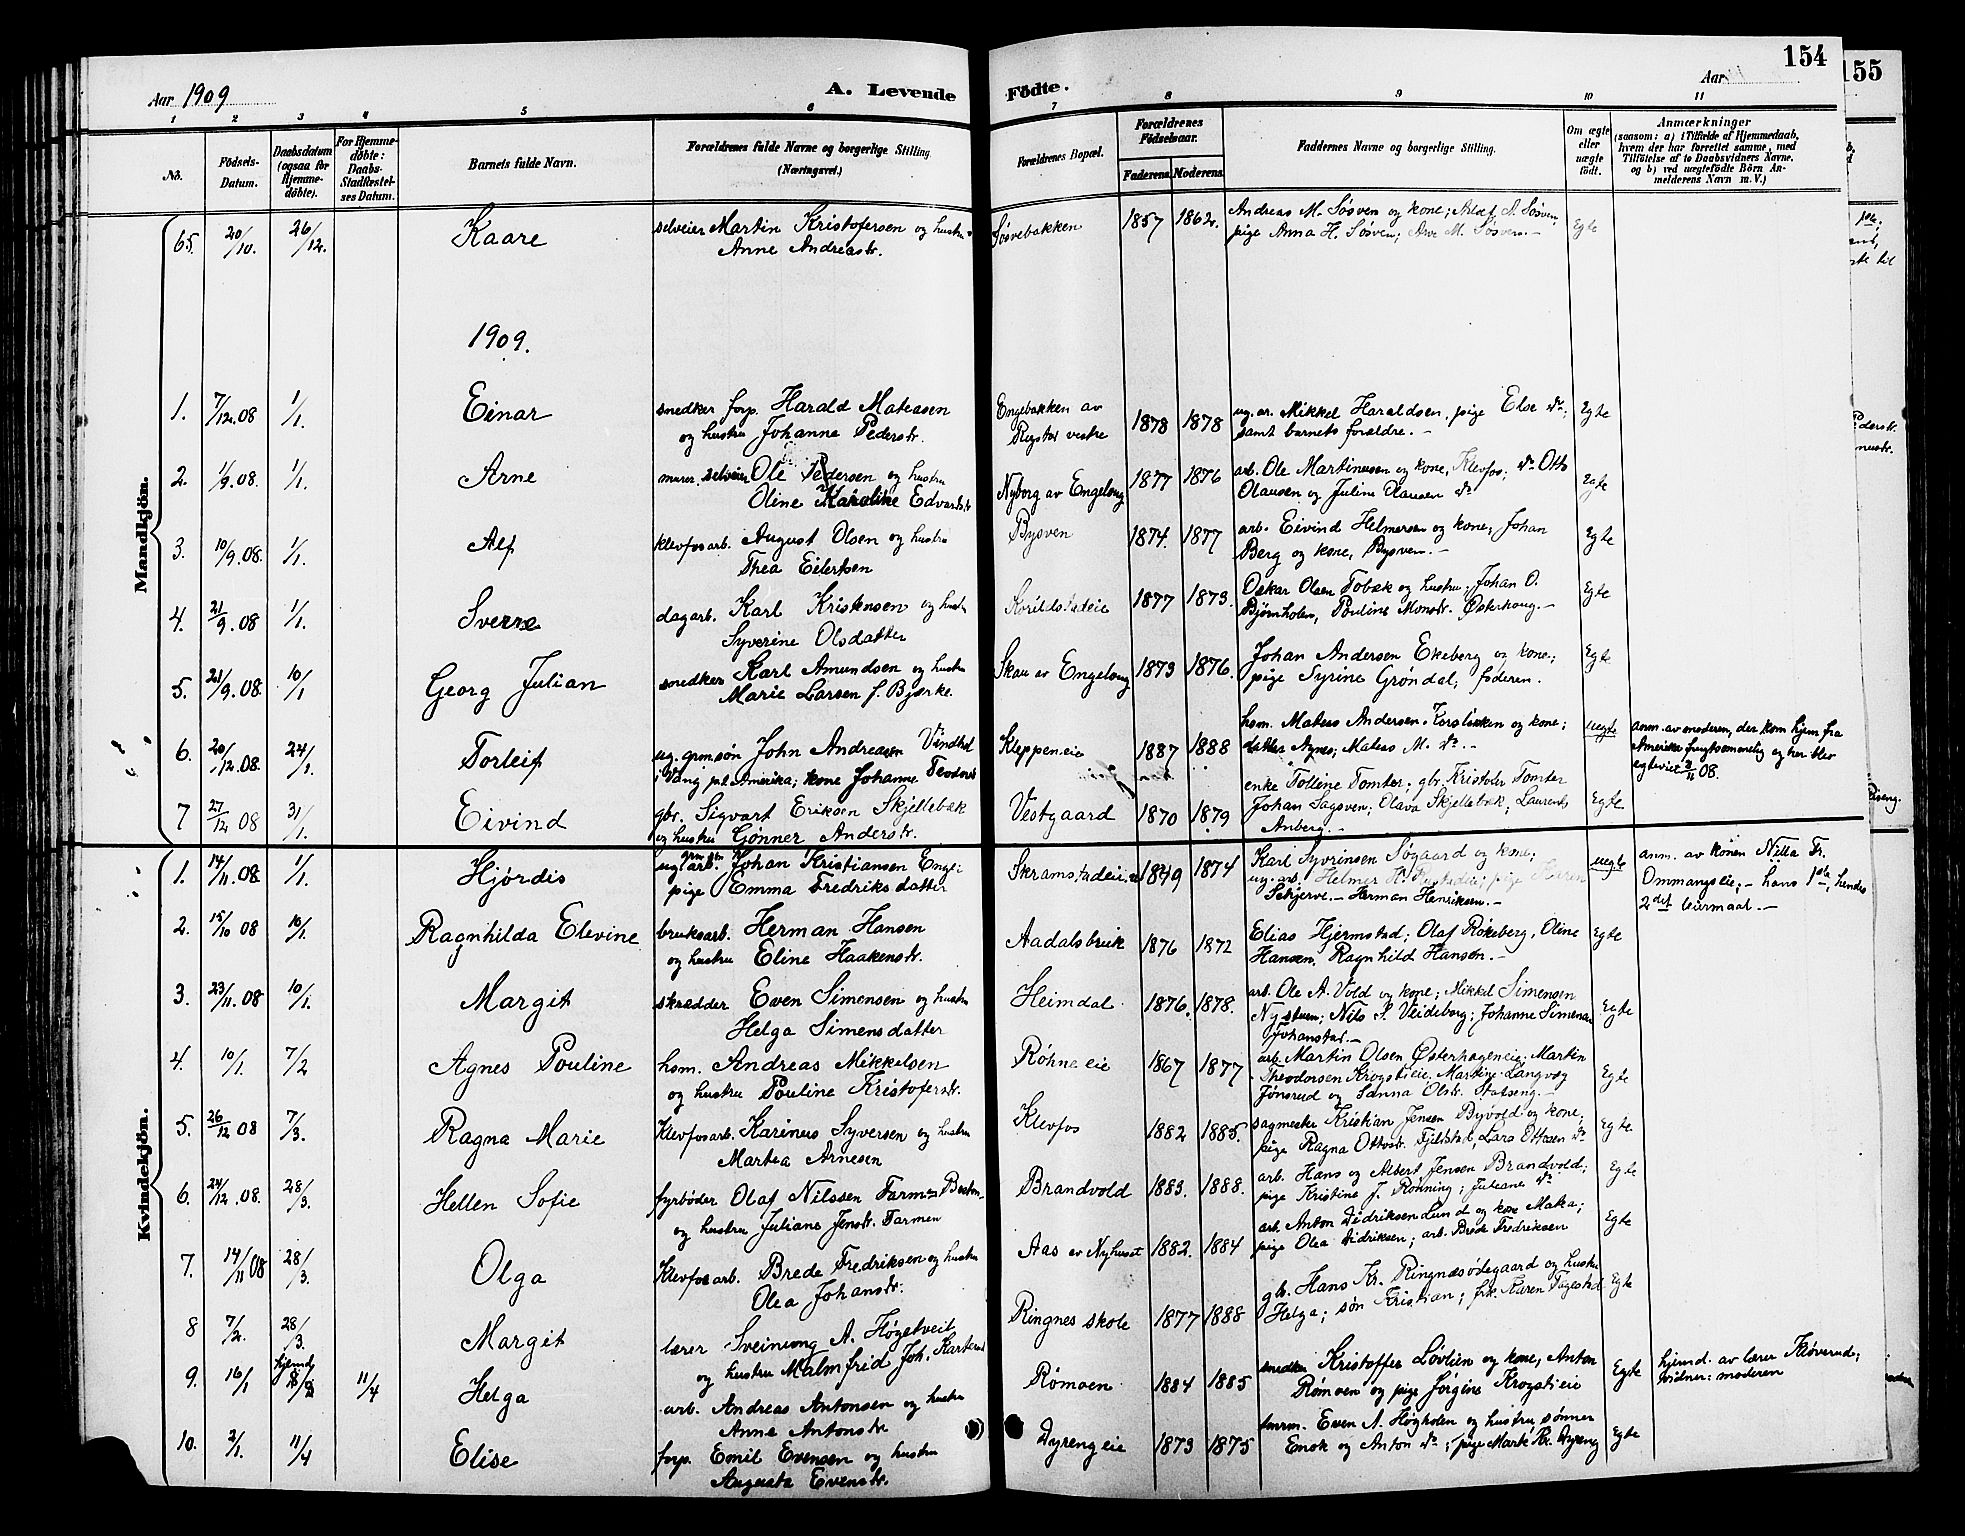 154
155
Aar 1909
A. Levende
Födte.
Aar
1 2 3 4 5 6 7 8 9 10 11
No.
Födsels-
Datum.
Daabsdatum
(ogsaa for
Hjemme-
döbte).
For Hjemme-
döbte:
Daabs-
Stadfæstel-
ses Datum.
Barnets fulde Navn.
Forældrenes fulde Navne og borgerlige Stilling
(Næringsvei.)
Forældrenes Bopæl.
Forældrenes
Födselsaar.
Faderens. Moderens.
Faddernes Navne og borgerlige Stilling.
Om ægte
eller
uægte
födt.
Anmærkninger
(saasom: a) i Tilfælde af Hjemmedaab,
hvem der har forrettet samme, med
Tilföielse af to Daabsvidners Navne,
og b) ved uægtefödte Börn An-
melderens Navn m. V.)
Mandkjön.
65. 20/10. 26/12. Kaare
selveier Martin Kristofersen og hustru
Anne Andreastr.
Søsvebakken 1857 1862.
Andreas M. Søsven og kone; A. Søsven,
pige Anna H. Søsven; M. Søsven.-
Egte
1909.
1. 7/12.08 1/1. Einar
snedker forp. Harald Mateasen
og hustru Johanne Pederstr.
Engebakken av
Rogstad vestre
1878 1878
ug. ar. Mikkel Haraldsen, pige Else do;
samt barnets forældre. -
Egte
2. 1/9.08. 1/1. Arne
murer, selveier Ole Pedersen og hustru
Oline Karoline Edvardstr
Nyborg av Engelaug 1877 1876
arb. Ole Martinusen og kone, Klevfos; do Otto
Olausen og Juline Olausen do
Egte
3. 10/9.08. 1/1. Alf
klevfosarb. August Olsen og hustru
Thea Eilertsen
Bysven 1874. 1877
arb. Eivind Helmersen og kone; Johan
Berg og kone, Bysven. -
Egte
4. 21/9.08 1/1. Sverre
dagarb. Karl Kristensen og hustru
Syverine Olsdatter
Kvildstadeie 1877 1873.
Oskar Olsen Tobæk og hustru; Johan O.
Bjørnholen, Pouline Monstr. Østerhaug. -
Egte
5. 21/9.08. 10/1 Georg Julian
snedker Karl Amundsen og hustru
Marie Larsen f. Bjørke.
Skau av Engelaug 1873 1876.
Johan Andersen Ekeberg og kone;
pige Syrine Grøndal; faderen.
Egte
6. 20/12.08. 24/1. Torleif
ug. grmsøn John Andreasen Vindhol
i Vang pt. Amerika; kone Johanne Teodors
Kleppeneie 1887 1888
hsm. Mateas Andersen og kone;
datter Agnes; Mateas M. do. -
uegte
anm. av moderen, der kom hjem fra
Amerika frugtsommelig og her blev
egteviet 08.
7 27/12 08 31/1. Eivind
gbr. Sigvart Eriksen Skjellebæk
og hustru Gønner Anderstr.
Vestgaard 1870 1879
enke Tolline Tomter; gbr. Kristofer Tomter
Johan Sagsven; Olava Skjellebæk; Laurents
Anberg. -
Egte
Kvindekjön.
1. 14/11.08. 1/1. Hjørdis
ug. arb. Johan Kristiansen Enge:
pige Emma Fredriksdatter
Skramstadeie 1849 1874
Karl Syvrinsen Søgaard og kone;
ug. arb. Helmer H.; pige Karen
Skjerve. - Herman Henriksen. -
uegte
anm. av konen Nilla Fr.
Ommangseie; - hans 1ste, hendes
2det leiermaal. -
2. 15/10 08 10/1. Ragnhilda Elevine
bruksarb. Herman Hansen
og hustru Eline Haakenstr.
Aadalsbruk 1876 1872
Elias Hjermstad; Olaf Røkeberg, Oline
Hansen, Ragnhild Hansen. -
Egte
3. 23/11.08 10/1. Margit
skrædder Even Simensen og hustru
Helga Simensdatter
Heimdal. 1876. 1878.
arb. Ole A. Vold og kone; Mikkel Simensen
Nystuen; Nils S. Veideborg; Johanne Simensen
Johanstad. -
Egte
4. 10/1. 7/2 Agnes Pouline
hsm. Andreas Mikkelsen
og hustru Pouline Kristoferstr.
Røhneeie 1867 1877
arb. Martin Olsen Østerhageneie; Martin
Theodorsen Krogstieie, Martine Langvæg
Jønsrud og Sanna Olstr. Statseng. -
Egte
5. 26/12 08 7/3. Ragna Marie
Klevfosarb. Karinus Syversen og hustru
Martea Arnesen
Klevfos 1882 1885.
sagmester Kristian Jensen Byvold og kone;
pige Ragna Ottostr. Fjeldstad, Lars Ottesen do
Egte
6. 24/12.08. 28/3. Hellen Sofie
fyrbøder Olaf Nilssen Farmen
og hustru Juliane Jenstr. Farmen
Brandvold 1883. 1888.
arb. Hans og Albert Jensen Brandvold;
pige Kristine J. Rønning; Juliane do
Egte
7. 14/11 08 28/3. Olga
Klevfosarb. Brede Fredriksen og hustru
Olea Johanstr.
Aas av Nyhuset 1882. 1884
arb. Anton Didriksen Lund og kone Maka;
pige Olea Didriksen; arb. Brede Fredriksen
Egte
8 7/2. 28/3. Margit
lærer Sveinung A. Høgetveit
og hustru Malmfrid Joh.
Ringnes skole 1877 1888
gb. Hans Kr. Ringnæsødegaard og hustru
Helga; søn Kristian; frk. Karen Fagestad
Egte
9. 16/1 hjemd. 11/4 Helga
arb. Andreas Antonsen og hustru
Anne Antonstr
Rømoen 1884 1885
snedker Kristoffer Løvlien og kone, Anton
Rømoen og pige Jørgine Krogstieie
Egte
hjemd. av lærer Kløverud;
vidner: moderen
10. 2/1. 11/4 Elise
forp. Emil Evensen og hustru
Augusta Evenstr.
Dyrengeie 1873 1875
Even A. Høgholen og hustru, sønner
Enok og Anton do; pige Marte Kr. Dyreng
Egte